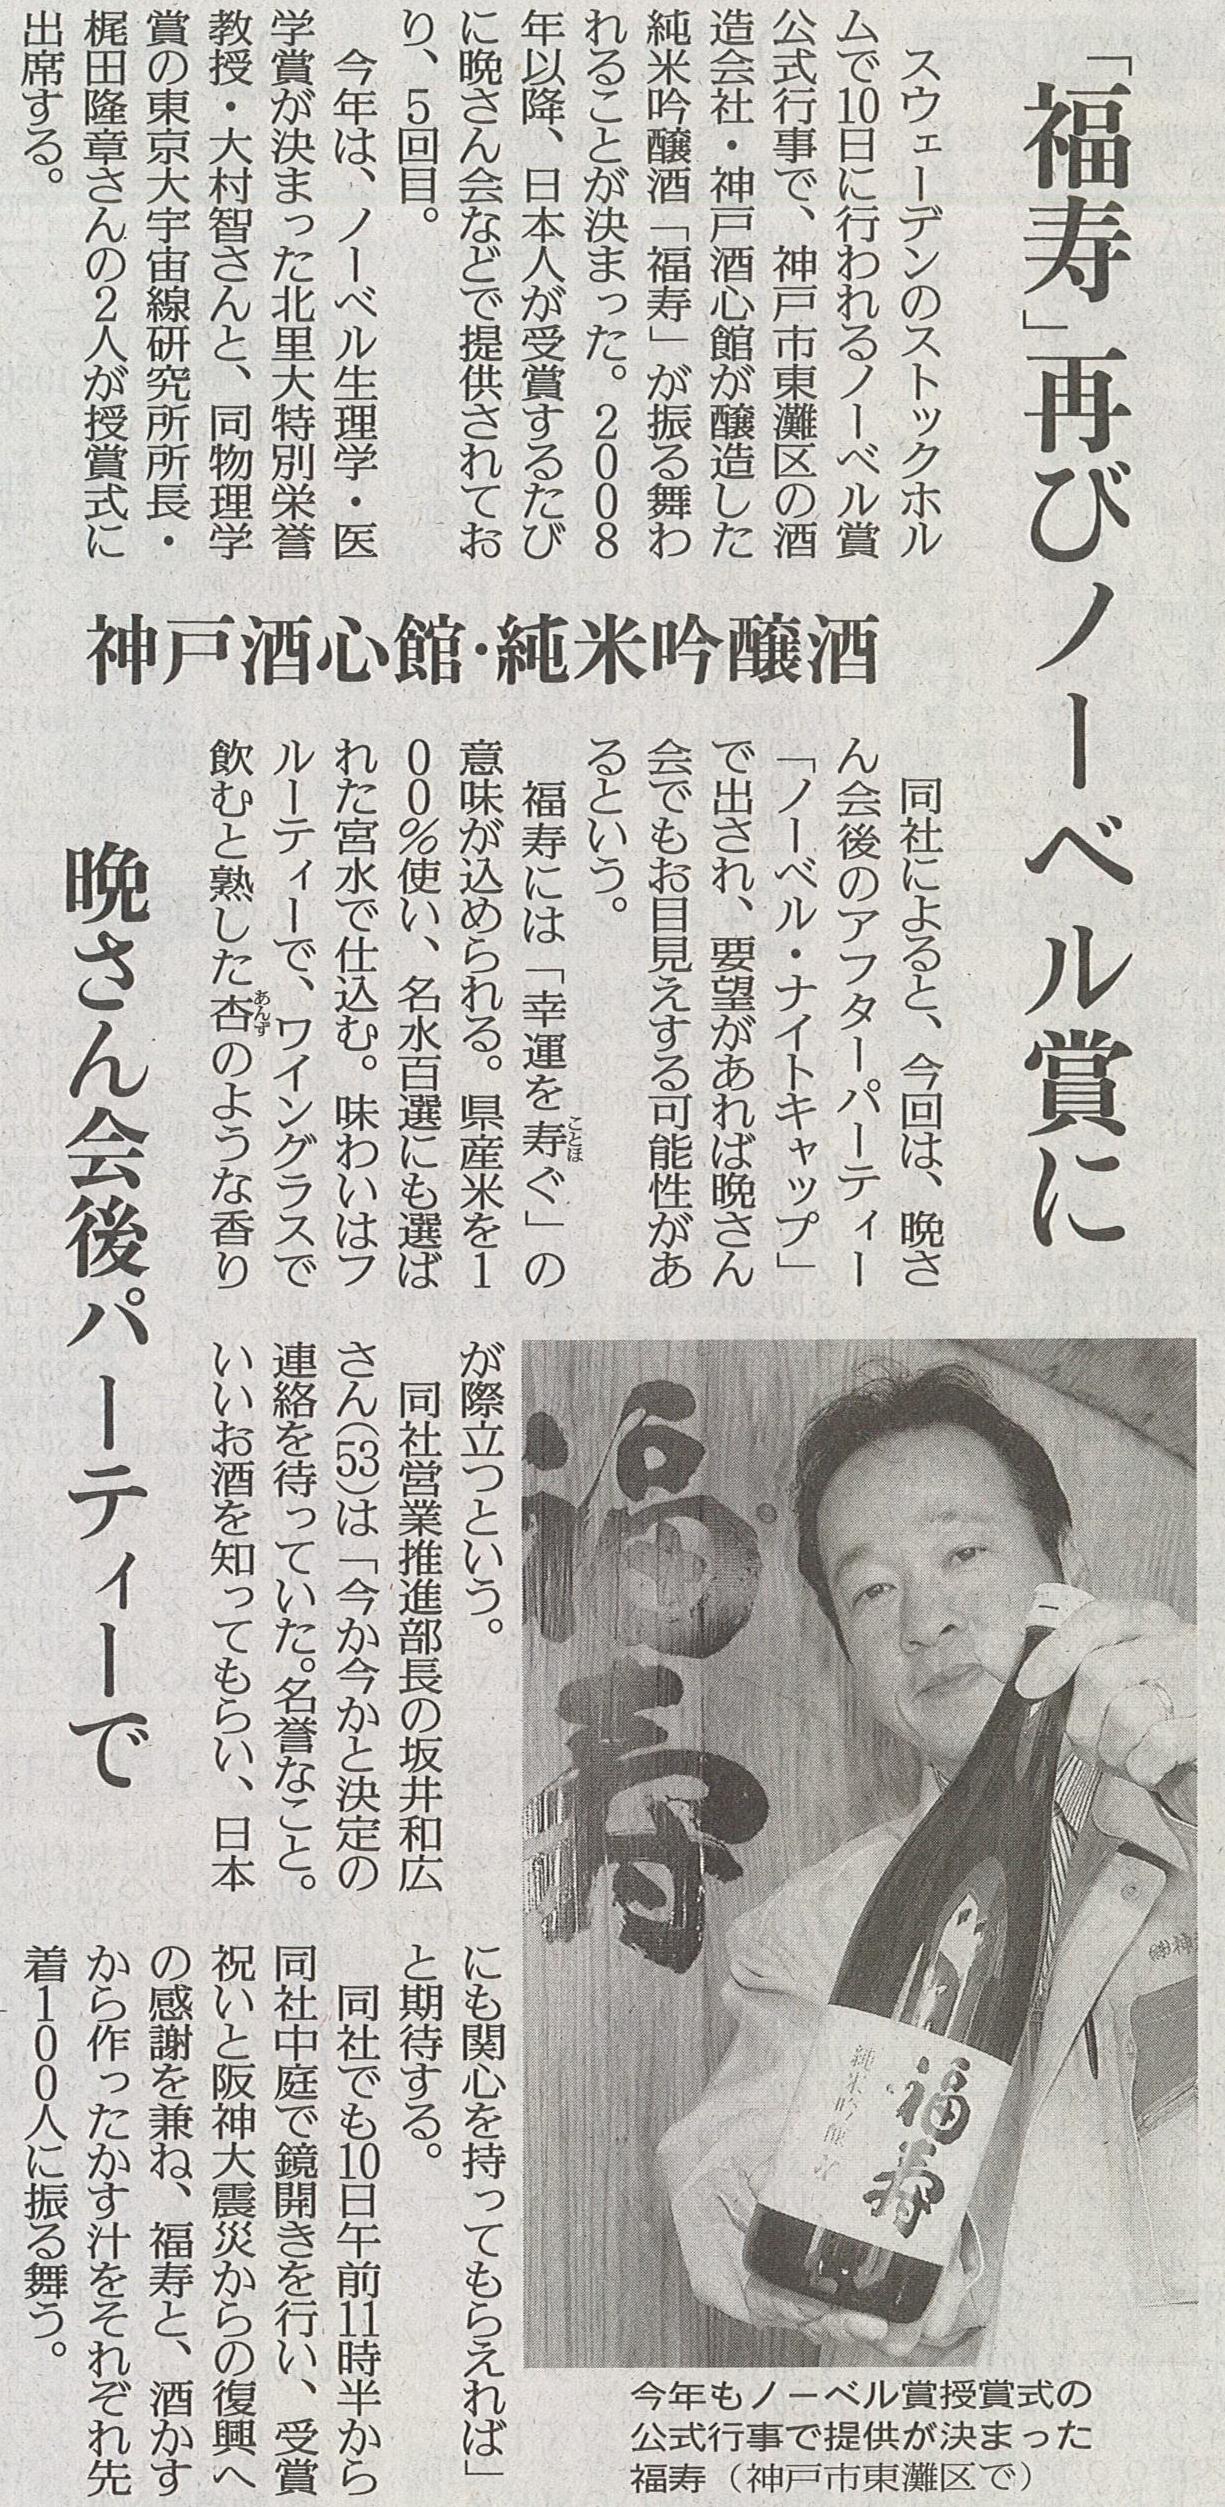 「福寿」再びノーベル賞に
スウェーデンのストックホル
ムで10日に行われるノーベル賞
公式行事で、神戸市東灘区の酒
造会社・神戸酒心館が醸造した
純米吟醸酒「福寿」が振る舞わ
れることが決まった。2008
年以降、日本人が受賞するたび
に晩さん会などで提供されてお
り、5回目。
今年は、ノーベル生理学・医
学賞が決まった北里大特別栄誉
教授・大村智さんと、同物理学
賞の東京大宇宙線研究所所長・
梶田隆章さんの2人が授賞式に
出席する。
神戸酒心館・純米吟醸酒
晩さん会後パーティーで
同社によると、今回は、晩さ
ん会後のアフターパーティー
「ノーベル・ナイトキャップ」
で出され、要望があれば晩さん
会でもお目見えする可能性があ
るという。
福寿には「幸運を寿ぐ」の
ことほ
意味が込められる。県産米を1
00%使い、名水百選にも選ば
れた宮水で仕込む。味わいはフ
ルーティーで、ワイングラスで
飲むと熟した杏のような香り
あんず
が際立つという。
同社営業推進部長の坂井和広
さん(53)は「今か今かと決定の
連絡を待っていた。名誉なこと。
いいお酒を知ってもらい、日本
にも関心を持ってもらえれば」
と期待する。
同社でも10日午前11時半から
同社中庭で鏡開きを行い、受賞
祝いと阪神大震災からの復興へ
の感謝を兼ね、福寿と、酒かす
から作ったかす汁をそれぞれ先
着100人に振る舞う。
福寿
福寿
純米吟醸酒
㈱神
今年もノーベル賞授賞式の
公式行事で提供が決まった
福寿（神戸市東灘区で）